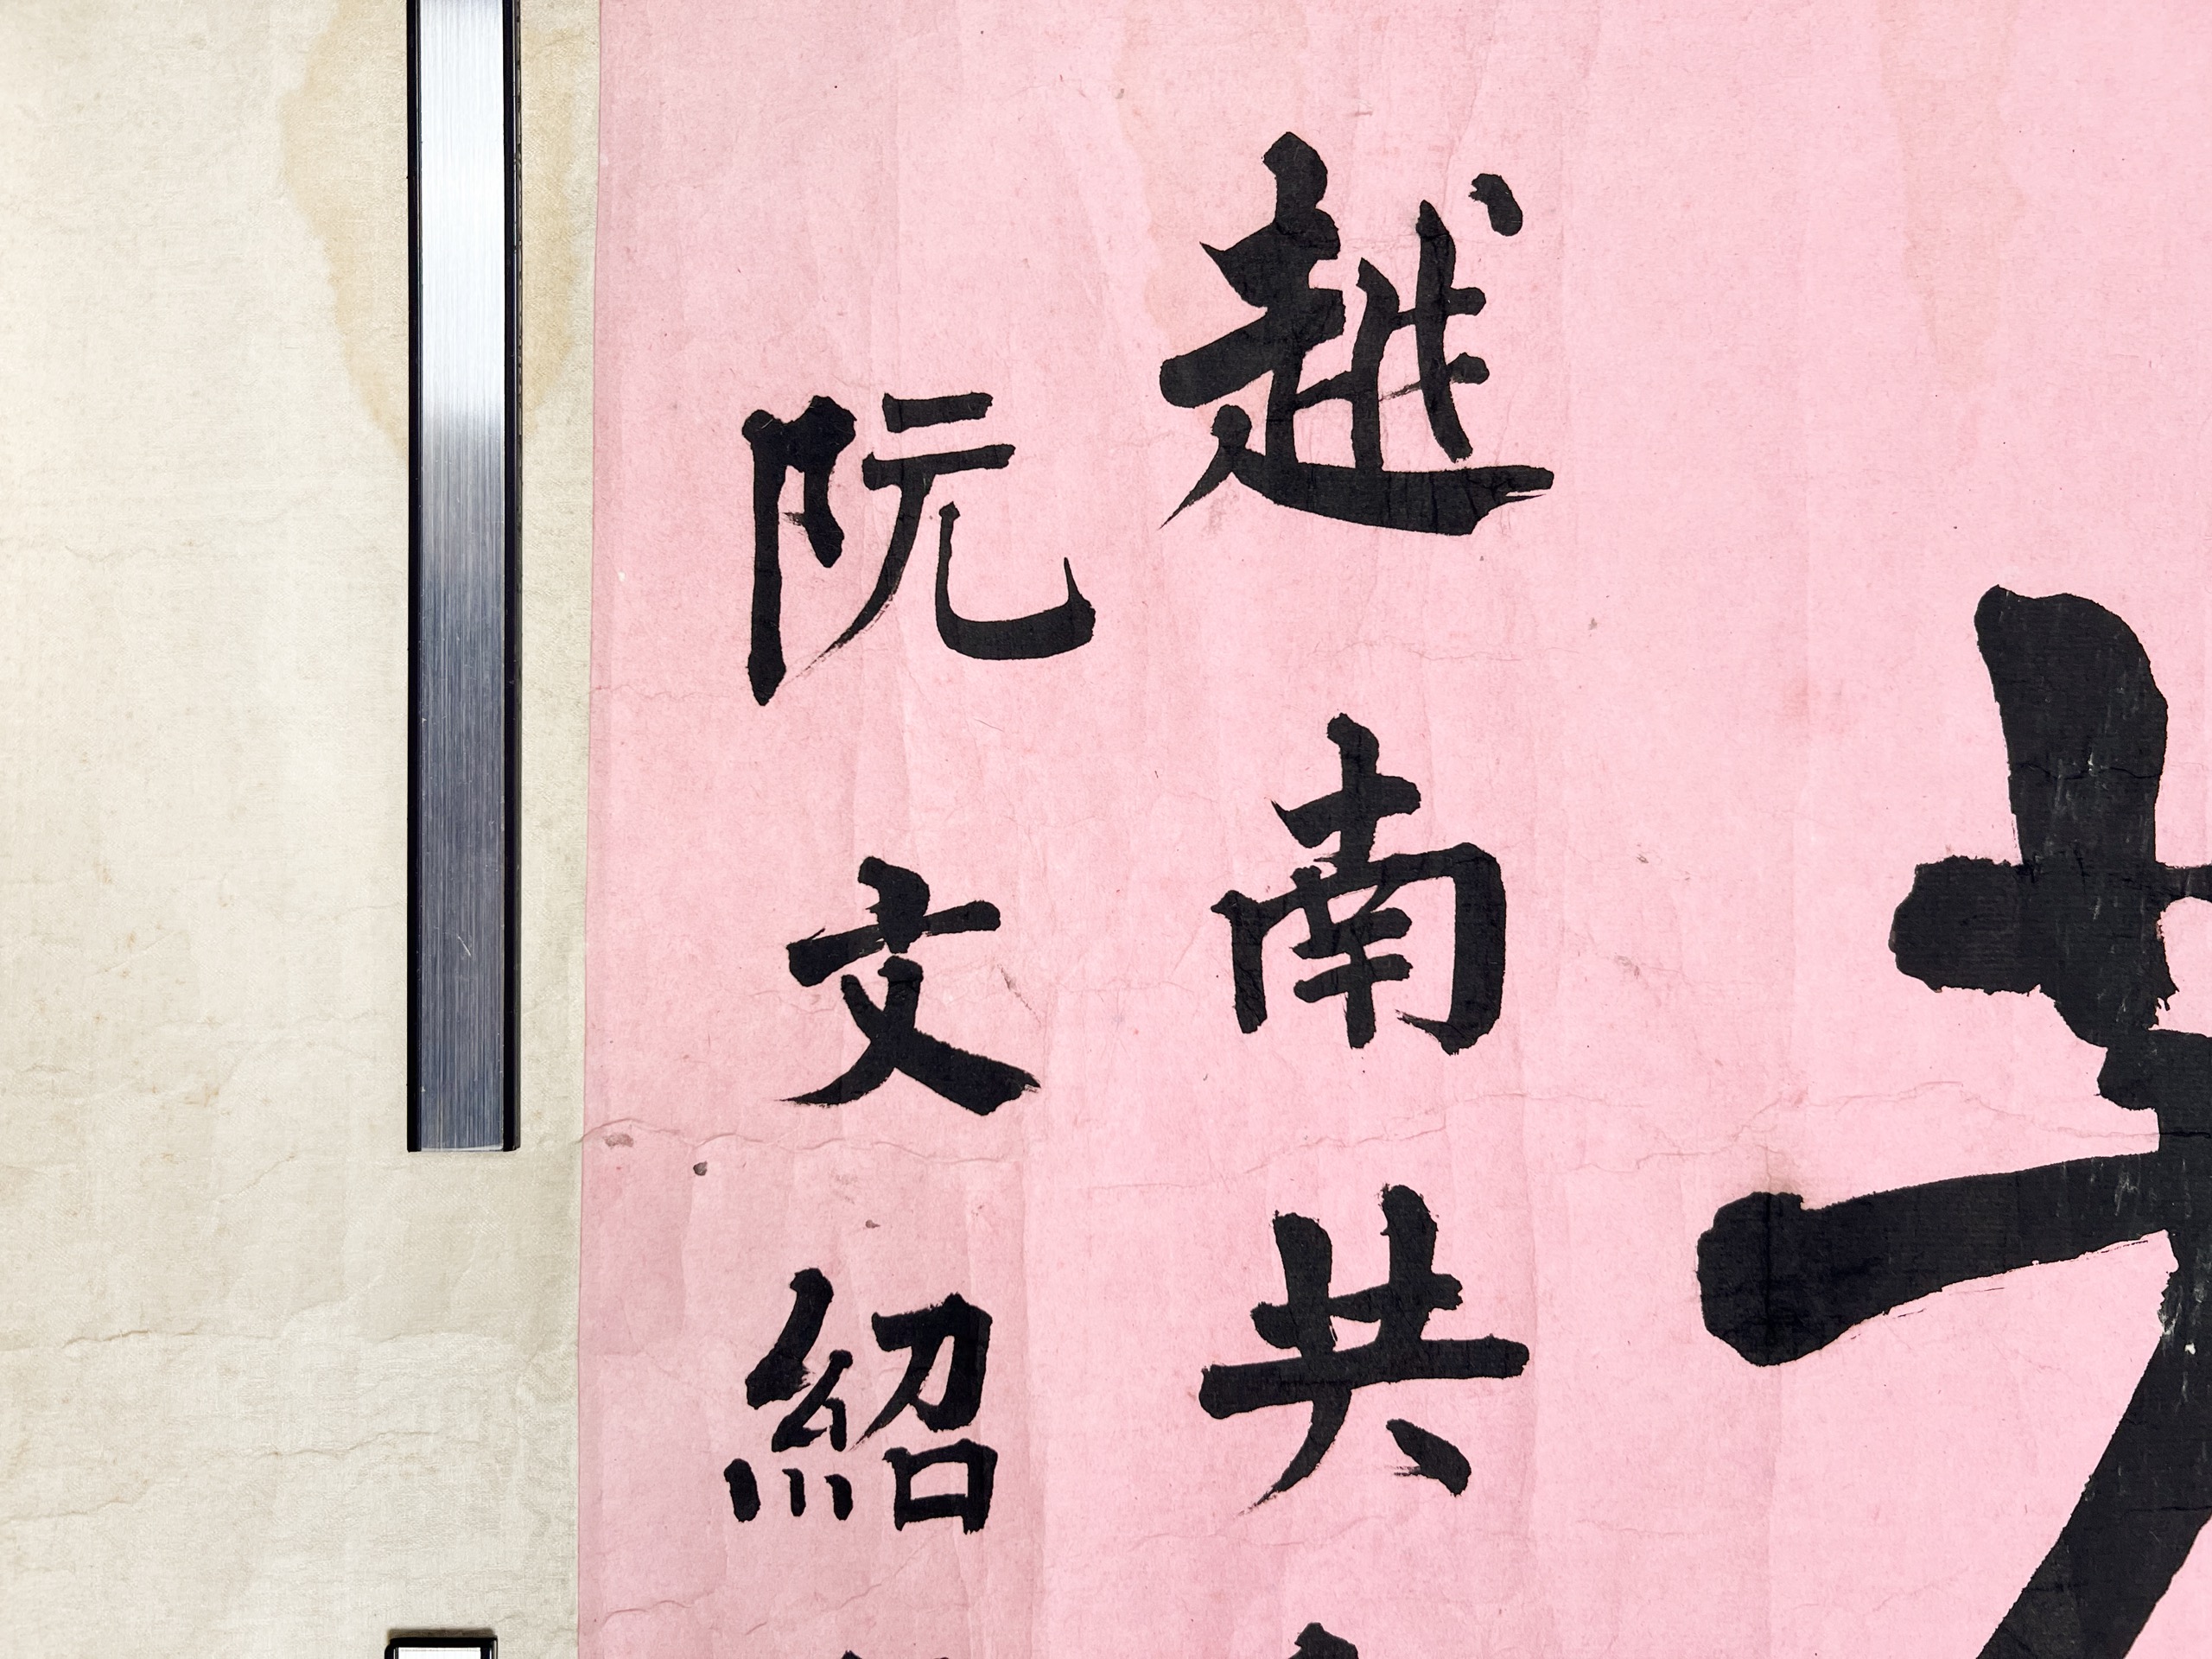 越南共
阮文紹